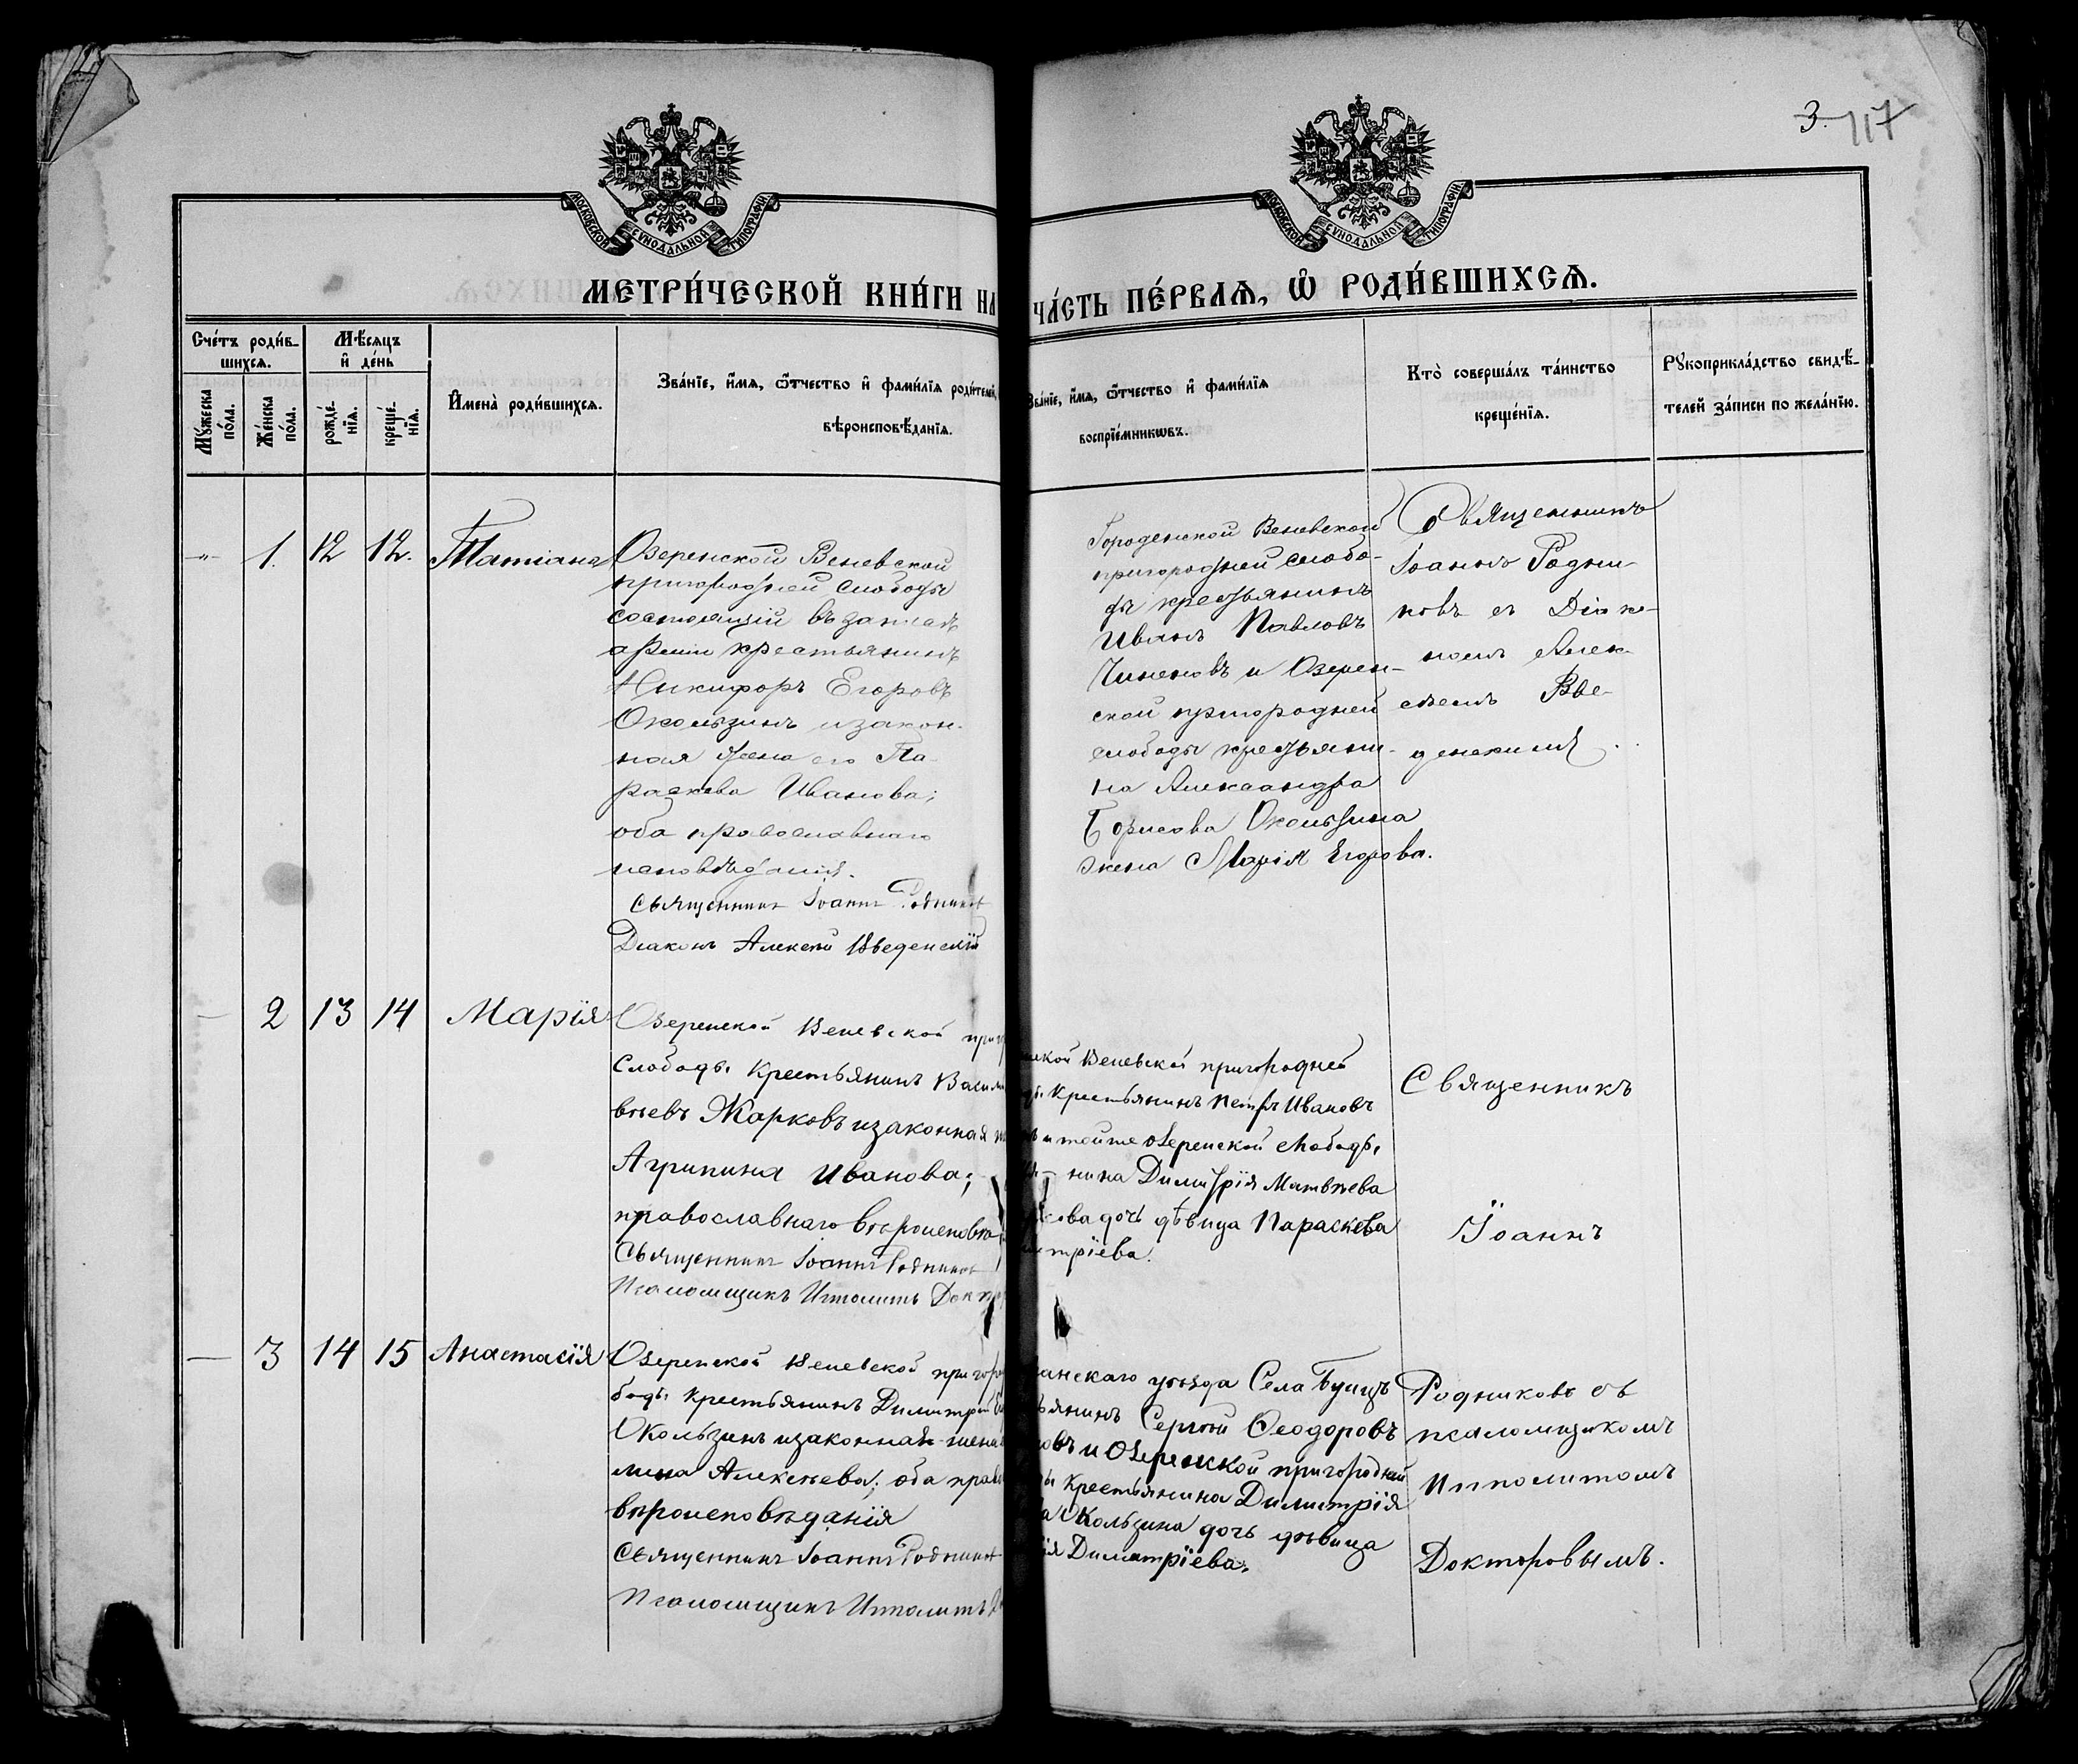 3. 117
МОСКОВСКОЙ СѴНОДАЛЬНОЙ ТИПОГРАФІИ
МОСКОВСКОЙ СѴНОДАЛЬНОЙ ТИПОГРАФІИ
МЕТРИ́ЧЕСКОЙ КНИ́ГИ НА
ЧА́СТЬ ПЕ́РВАѦ, Ѡ҆ РОДИ́ВШИХСѦ.
Сче́тъ роди́в-
шихсѧ.
Мѣ́сѧцъ
и҆ де́нь
Му́жеска по́ла.
Же́нска по́ла.
рожде́-
нїѧ.
креще́-
нїѧ.
И҆мена̀ роди́вшихсѧ.
Зва́нїе, и҆́мѧ, ѻ҆́тчество и҆ фами́лїѧ роди́телей,
вѣроисповѣ́данїѧ.
Зва́нїе, и҆́мѧ, ѻ҆́тчество и҆ фами́лїѧ
воспрїе́мникѡвъ.
Кто̀ соверша́лъ та́инство
креще́нїѧ.
Рꙋкоприкла́дство свидѣ́-
телей за́писи по жела́нїю.
-„- 1. 12 12. Татіана
Озеренской Веневской
пригородней слободы
состоящій въ запасѣ
арміи крестьянинъ
Никифоръ Егоровъ
Окользинъ и закон-
ная жена его Па-
раскева Иванова;
оба православнаго
исповѣданія.
Священникъ Іоаннъ Родников
Діаконъ Алексѣй Введенскій
Городенской Веневской
пригородней слобо-
ды крестьянинъ
Иванъ Павловъ
и Озерен-
ской пригородней
слободы крестьяни-
на Александра
Борисова Окользина
жена Марія Егорова.
Священникъ
Іоаннъ Родни-
ковъ съ Діако-
номъ Алек-
сѣемъ Вве-
денскимъ.
— 2 13 14 Марія
Озеренской Веневской приг
слободы крестьянинъ Васил
вьевъ Жарковъ и законная
Агрипина Иванова;
православнаго вѣроисповѣ
Священникъ Іоаннъ Родников
Псаломщикъ Ипполитъ Докт
ской Веневской пригородней
ды крестьянинъ Петръ Ивановъ
и тойже Озеренской слободы
нина Димитрія Матвѣева
кова дочь дѣвица Параскева
трїева.
Священникъ
Іоаннъ
— 3 14 15 Анастасїя
Озеренской Веневской пригор
боды крестьянинъ Димитрій
Окользинъ и законная жена
Алексѣева; оба прав
вѣроисповѣданїя
Священникъ Іоаннъ Родников
Псаломщикъ Ипполитъ
анскаго уѣзда Села Буицъ
ьянинъ Сергѣй Ѳеодоровъ
овъ и Озеренской пригородней
ды крестьянина Димитрїя
Окользина дочь дѣвица
їя Димитрїева.
Родниковъ съ
псаломщикомъ
Ипполитомъ
Докторовымъ.